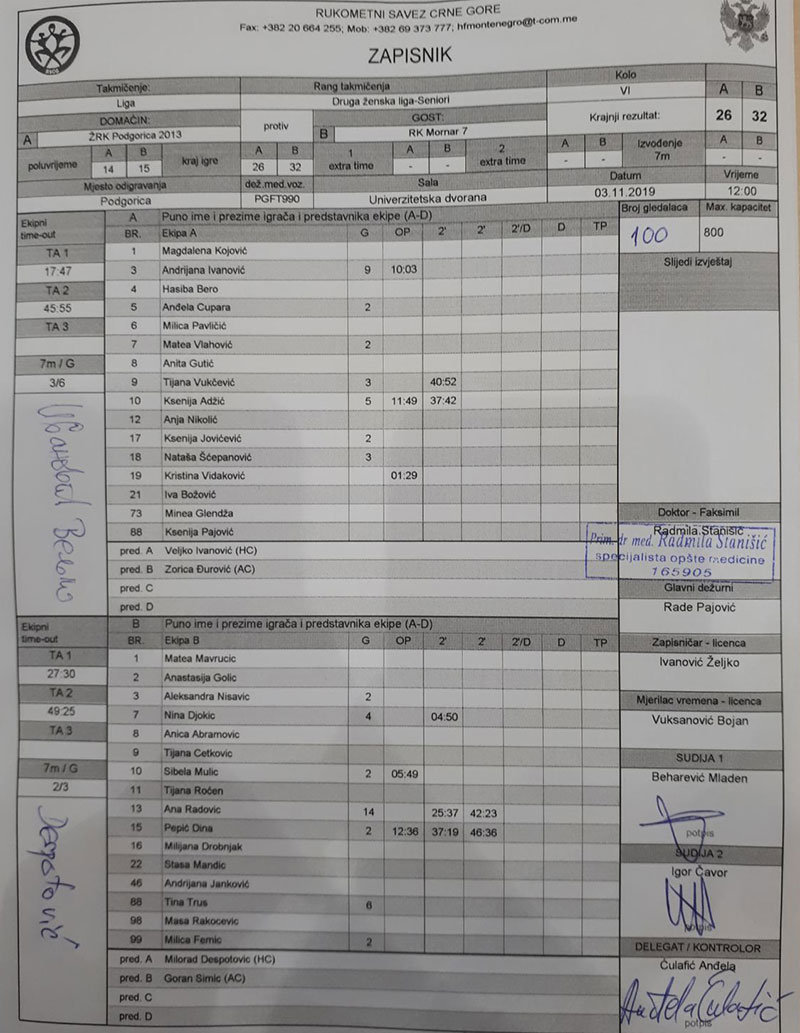 RUKOMETNI SAVEZ CRNE GORE
Fax: +382 20 664 255; Mob: +382 69 373 777; hfmontenegro@t-com.me
ZAPISNIK
Takmičenje: Rang takmičenja Kolo A B
Liga Druga ženska liga-Seniori VI
DOMAĆIN: protiv GOST: Krajnji rezultat: 26 32
A ŽRK Podgorica 2013 B RK Mornar 7
poluvrijeme A B kraj igre A B 1 extra time A B 2 extra time A B Izvođenje 7m A B
14 15 26 32 - - - - - -
Mjesto odigravanja dež.med.voz. Sala Datum Vrijeme
Podgorica PGFT990 Univerzitetska dvorana 03.11.2019 12:00
Ekipni time-out A Puno ime i prezime igrača i predstavnika ekipe (A-D) Broj gledalaca Max. kapacitet
BR. Ekipa A G OP 2' 2' 2'/D D TP 100 800
TA 1 1 Magdalena Kojović Slijedi izvještaj
17:47 3 Andrijana Ivanović 9 10:03
TA 2 4 Hasiba Bero
45:55 5 Anđela Cupara 2
TA 3 6 Milica Pavličić
7 Matea Vlahović 2
7m / G 8 Anita Gutić
3/6 9 Tijana Vukčević 3 40:52
10 Ksenija Adžić 5 11:49 37:42
12 Anja Nikolić
17 Ksenija Jovićević 2
18 Nataša Šćepanović 3
19 Kristina Vidaković 01:29
21 Iva Božović
73 Minea Glendža Doktor - Faksimil
88 Ksenija Pajović Radmila Stanišić
pred. A Veljko Ivanović (HC) Prim. dr med. Radmila Stanišić
pred. B Zorica Đurović (AC) specijalista opšte medicine
165905
pred. C Glavni dežurni
pred. D Rade Pajović
Ekipni time-out B Puno ime i prezime igrača i predstavnika ekipe (A-D)
BR. Ekipa B G OP 2' 2' 2'/D D TP Zapisničar - licenca
TA 1 1 Matea Mavrucic Ivanović Željko
27:30 2 Anastasija Golic
TA 2 3 Aleksandra Nisavic 2 Mjerilac vremena - licenca
49:25 7 Nina Djokic 4 04:50 Vuksanović Bojan
TA 3 8 Anica Abramovic
9 Tijana Cetkovic SUDIJA 1
7m / G 10 Sibela Mulic 2 05:49 Beharević Mladen
2/3 11 Tijana Roćen
13 Ana Radovic 14 25:37 42:23
15 Pepić Dina 2 12:36 37:19 46:36 potpis
16 Milijana Drobnjak SUDIJA 2
22 Stasa Mandic Igor Čavor
46 Andrijana Janković
88 Tina Trus 6
98 Masa Rakocevic potpis
99 Milica Femic 2 DELEGAT / KONTROLOR
pred. A Milorad Despotovic (HC) Ćulafić Anđela
pred. B Goran Simic (AC)
pred. C Anđela Ćulafić
pred. D potpis
Despotović